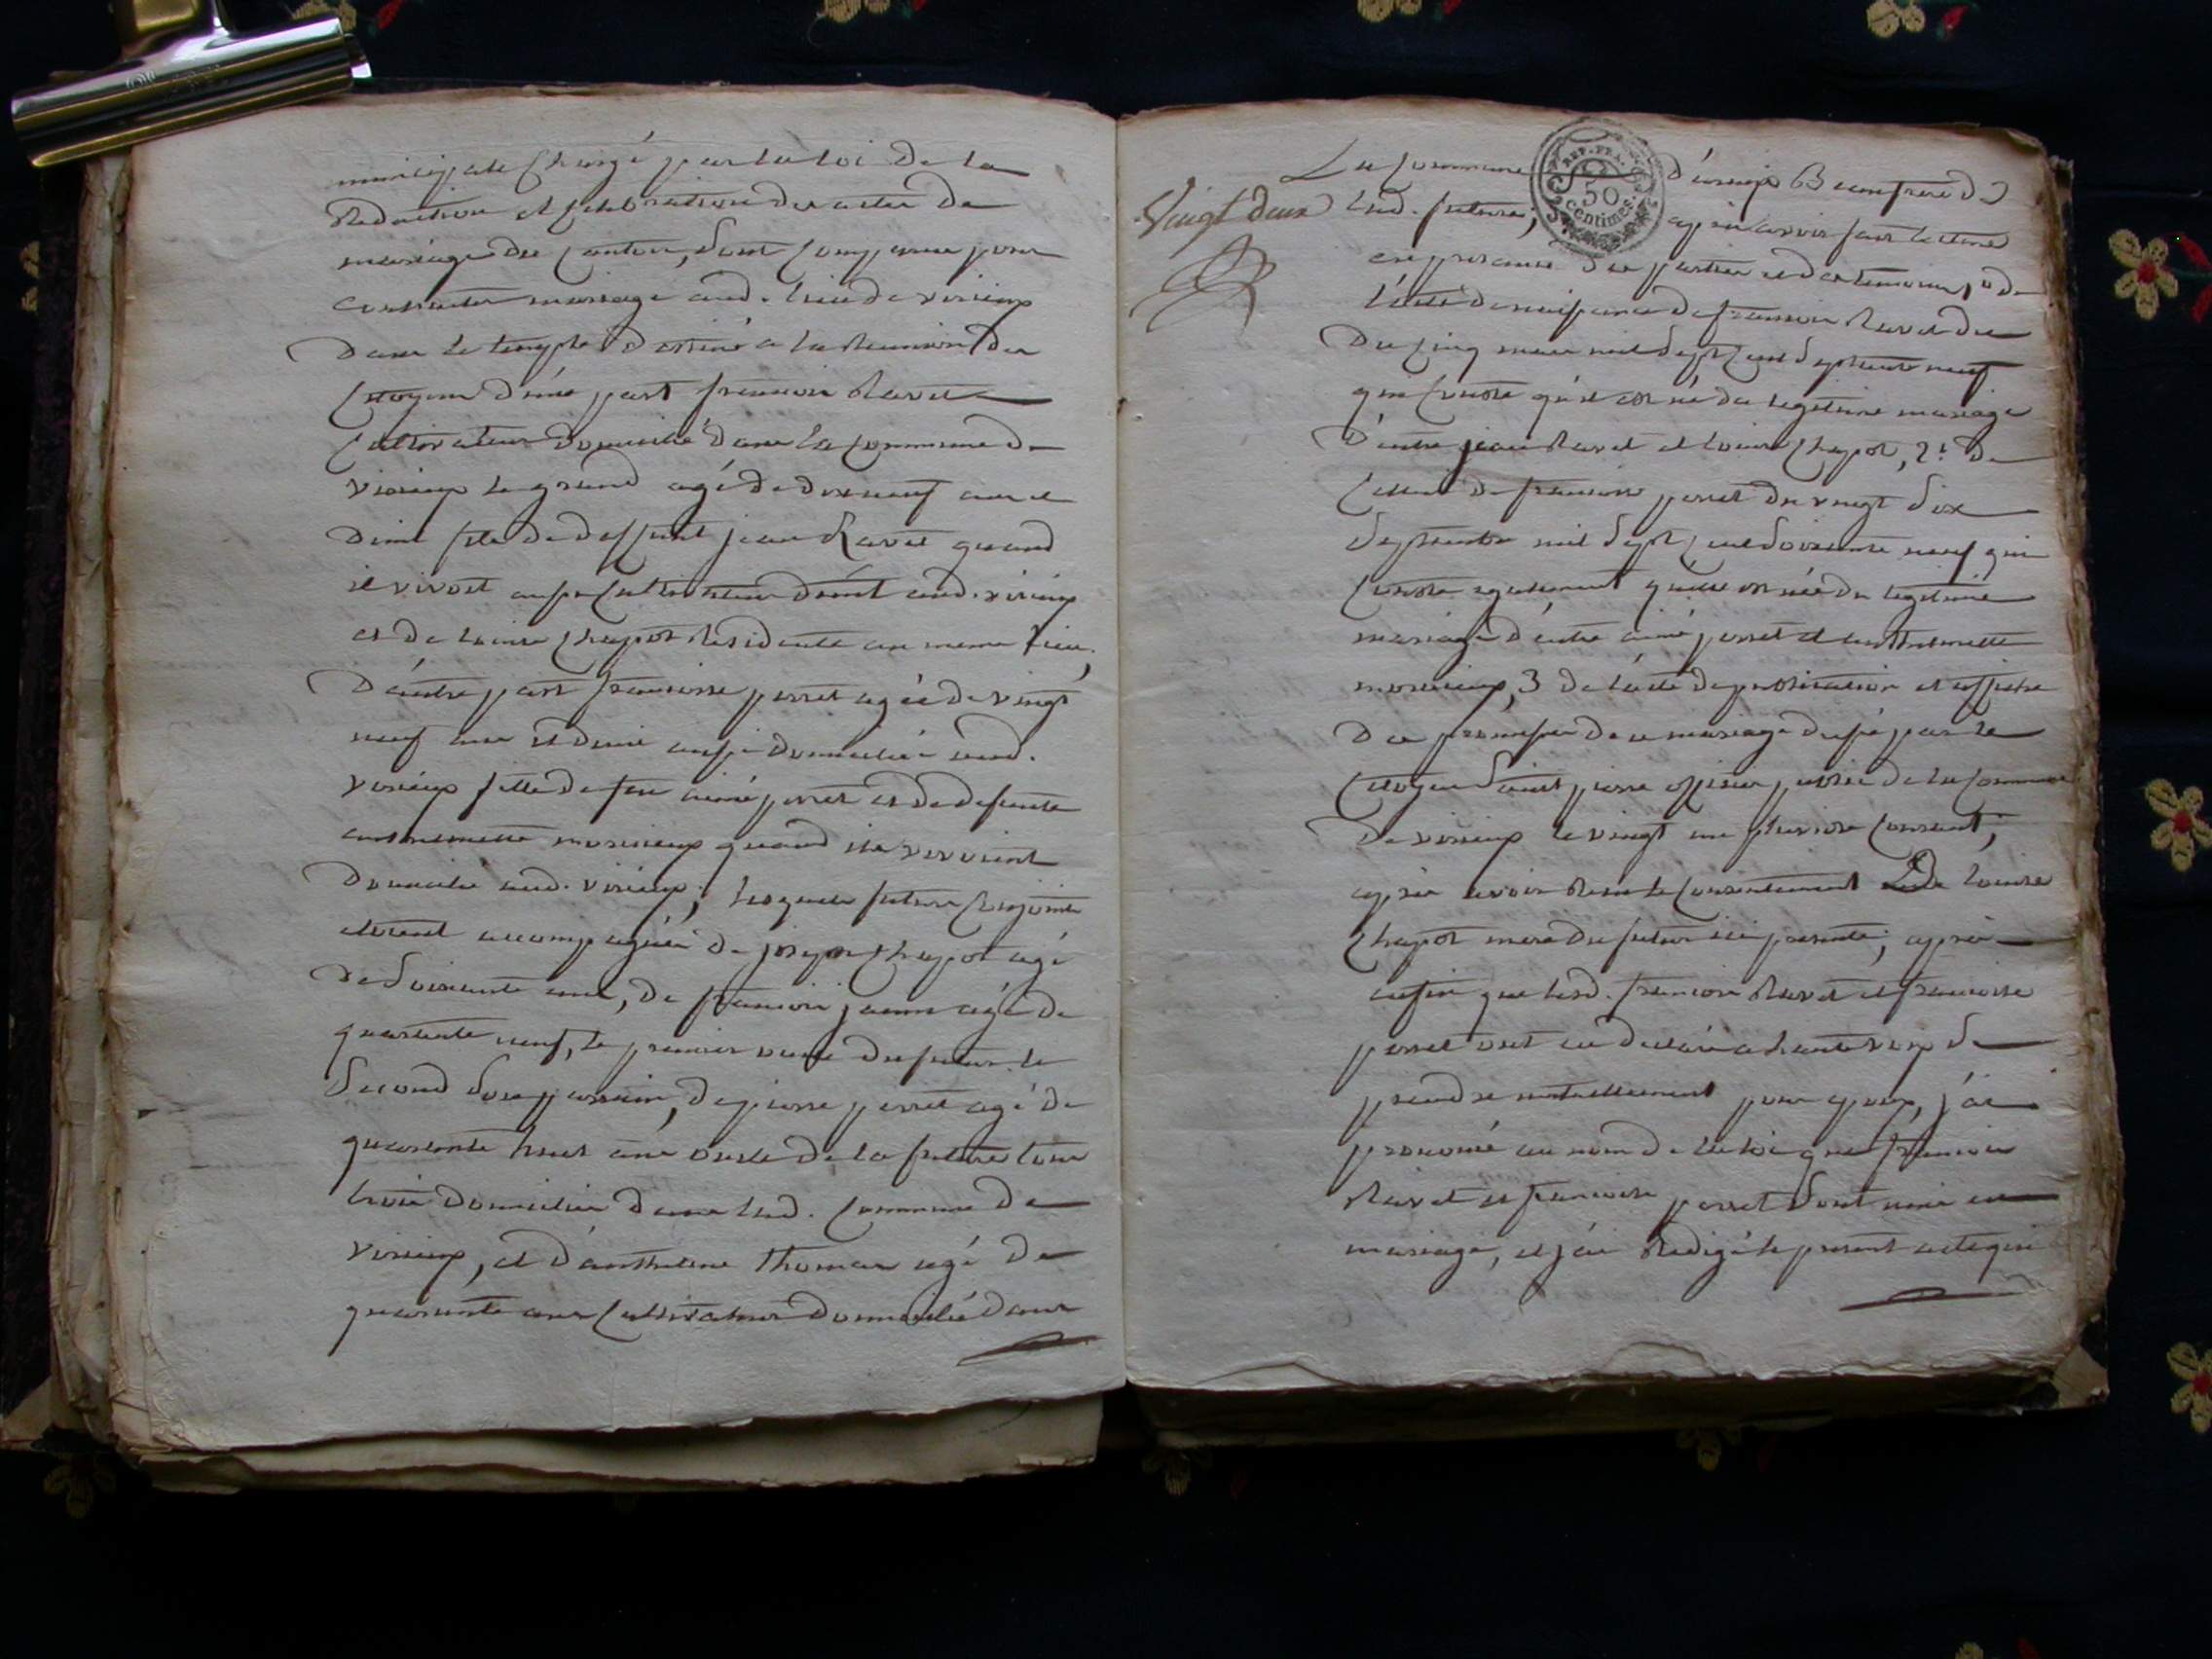 municipale chargé par la loi de la
Redaction et celebration des actes de
mariage du canton, sont comparus pour
contracter mariage aud. lieu de virieux
dans le temple destiné a la Reunion des
citoyens d'une part francois Ravet
cultivateur domicilié dans la commune de
virieux le grand agé de dixneuf ans et
demi fils de deffunt jean Ravet quand
il vivoit aussi cultivateur aud. virieux
et de louise chapot Residente au meme lieu,
D'autre part francoise perret agée de vingt
neuf ans et demi aussi domiciliée aud.
virieux fille de feu aimé perret et de defunte
anthelmette morieux quand ils vivoient
domiciliés aud. virieux; lesquels futurs conjoints
etoient accompagnés de joseph chapot agé
de soixante ans, de francois janin agé de
quarante neuf, le premier oncle du futur le
second son parrain, de pierre perret agé de
quarante huit ans oncle de la future tous
trois domiciliés dans lad. commune de
virieux, et d'anthelme thomas agé de
quarante ans cultivateur domicilié dans
La commune d' Beaufrere de
Vingt deux
lad. future; apres avoir fait lecture
en presence des parties et des temoins, 1° de
l'acte de naissance de francois Ravet du
Du cinq mars mil sept cent septante neuf
qui constate qu'il est né du legitime mariage
D'entre jean Ravet et louise chapot, 2° De
celui de francoise perret du vingt six
septembre mil sept cent soixante neuf qui
constate egalement qu'elle est née du legitime
mariage d'entre aimé perret et anthelmette
morieux, 3 de l'acte de publication et affiche
Des promesses de ce mariage dressé par le
citoyen saint pierre officier public de la commune
De virieux le vingt un pluviose courant;
apres avoir Recu le consentement De louise
chapot mere du futur ici presente; apres
enfin que lesd. francois Ravet et francoise
perret ont eu declaré a haute voix se
prendre mutuellement pour epoux, j'ai
prononcé au nom de la loi que francois
Ravet et francoise perret sont unis en
mariage, et j'ai Redigé le present acte que
REP. FRA.
50
centimes.